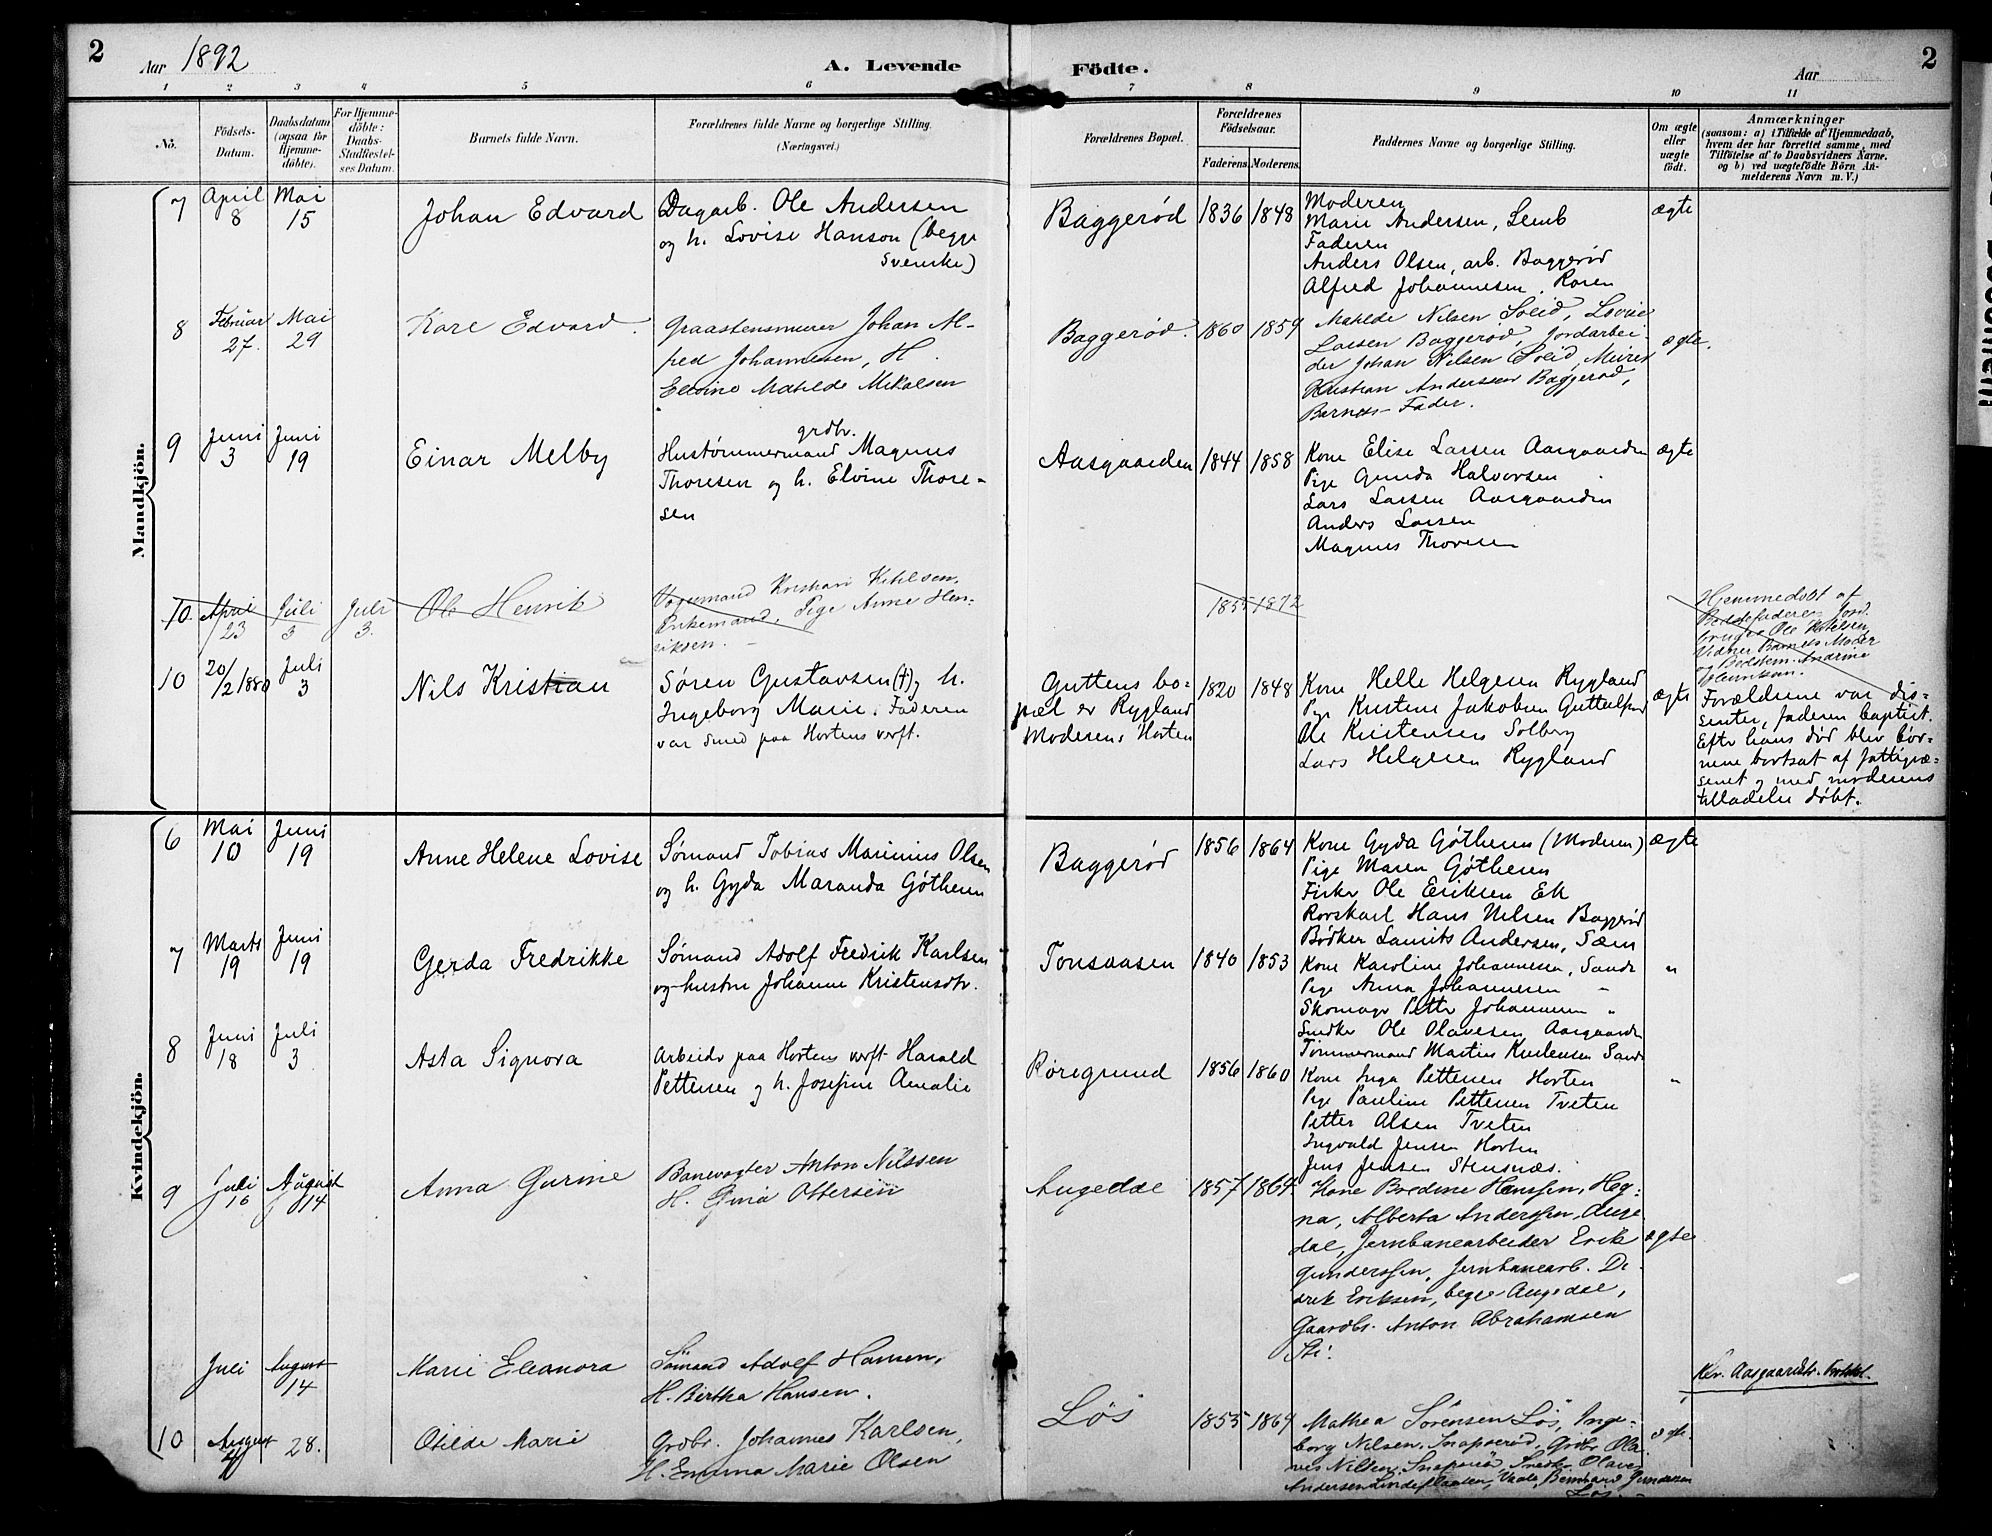 2
Aar 1892
A. Levende
Födte.
Aar
2
1 2 3 4 5 6 7 8 9 10 11
No.
Födsels-
Datum.
Daabsdatum
(ogsaa for
Hjemme-
döbte).
For Hjemme-
döbte:
Daabs-
Stadfæstel-
ses Datum.
Barnets fulde Navn.
Forældrenes fulde Navne og borgerlige Stilling.
(Næringsvei.)
Forældrenes Bopæl.
Forældrenes
Födselsaar.
Faderens. Moderens.
Faddernes Navne og borgerlige Stilling.
Om ægte
eller
uægte
födt.
Anmærkninger
(saasom: a) i Tilfælde af Hjemmedaab,
hvem der har forrettet samme, med
Tilföielse af to Daabsvidners Navne,
og b) ved uægtefödte Börn An-
melderens Navn m. V.)
Mandkjön.
7
April
8
Mai
15
Johan Edvard
Dagarb. Ole Andersen
og h. Lovise Hanson (begge
svenske)
Baggerød
1836
1848
Moderen
Marie Andersen, Semb
Faderen
Anders Olsen, arb. Baggerød
Alfred Johannesen,
ægte
8
Februar
27.
Mai
29
Karl Edvard.
Graastensmurer Johan Al-
fred Johannesen, H.
Elvine Matilde Mikalsen
Baggerød.
1860
1859
Matilde Nilsen Solid, Lovise
Larsen Baggerød, Jordarbei-
der Johan Nilsen Solid, Murer
Kristian Anderssen Baggerød,
Barnets Fader.
ægte.
9
Juni
3
Juni
19
Einar Melby
grdbr.
Hustømmermand Magnus
Thoresen og h. Elvine Thore-
sen
Aasgaarden
1844
1858
Kone Elise Larsen Aasgaarden
Pige Gunda Halvorsen
Lars Larsen Aasgaarden
Anders Larsen
Magnus Thoresen
ægte
10.
April
23
Juli
3
Juli
3.
Ole Henrik
Enkemand, Pige Anne Hen-
riksen.
1855
1872
Hjemmedøbt af
10
20/2 1880
Juli
3
Nils Kristian
Søren Gustavsen (†) og h.
Ingeborg Marie. Faderen
var smed paa Hortens verft.
Guttens bo-
pæl er Rygland
Moderens Horten
1820
1848
Kone Helle Helgesen Rygland
Pige Kristine Jakobsen
Ole Kristensen Solberg
Lars Helgesen Rygland
ægte
Forældrene var dis-
senter, faderen baptist.
Efter hans død blev bør-
nene bortsat af fattigvæ-
senet og med moderens
tilladelse døbt.
Kvindekjön.
6
Mai
10
Juni
19
Anne Helene Lovise
Sømand Tobias Marinius Olsen
og h. Gyda Maranda Gøthesen
Baggerød
1856
1864
Kone Gyda Gøthesen (Moderen)
Pige Maren Gøthesen
Fisker Ole Eriksen Ek
Rorskarl Hans Nilsen Baggerød
Bødker Lauritz Andersen, Sæm
ægte
7
Marts
19
Juni
19
Gerda Fredrikke
Sømand Adolf Fredrik Karlsen
og hustru Johanne Kristensdtr.
Tonsaasen
1840
1853
Kone Karoline Johannesen, Sande
Pige Anna Johannesen "
Skomager Petter Johannesen "
Snedker Ole Olavesen Aasgaarden
Tømmermand Martin Sande
"
8
Juni
18
Juli
3
Asta Signora
Arbeider paa Hortens verft Harald
Pettersen og h. Josefine Amalie
Røregrund
1856
1860
Kone Inga Pettersen Horten
Pige Pauline Pettersen Tveten
Petter Alsen Tveten
Ingvald Jensen Horten
Jens Jensen Stensnæs.
"
9
Juli
16
August
14
Anna Gurine
Banevogter Anton Nilssen
H. Gina Ottersen
Augedal
1857
1864
Kone Bredine Hanssen, Heg-
na, Alberta Anderssen, Auge-
dal, Jernbanearbeider Erik
Gunderssen, Jernbanearb. Di-
drik Eriksen, begge Augedal,
Gaardbr. Anton Abrahamsen
Sti.
ægte
Juli
August
14
Marie Eleonora
Sømand Adolf Hansen,
H. Bertha Hansen.
Kfr. Aasgaardstr. Protokol.
10
August
4
28.
Otilde Marie
Grdbr. Johannes Karlsen,
H. Emma Marie Olsen
Løs
1855
1864
Mathea Sørensen Løs, Inge-
borg Nilsen, Snapserød, Grdbr. Ola-
ves Nilsen, Snapsrød, Snedker Olaves
Andersen Lindeflaaten, Vaale, Bernhard Gundersen
Løs.
ægte.